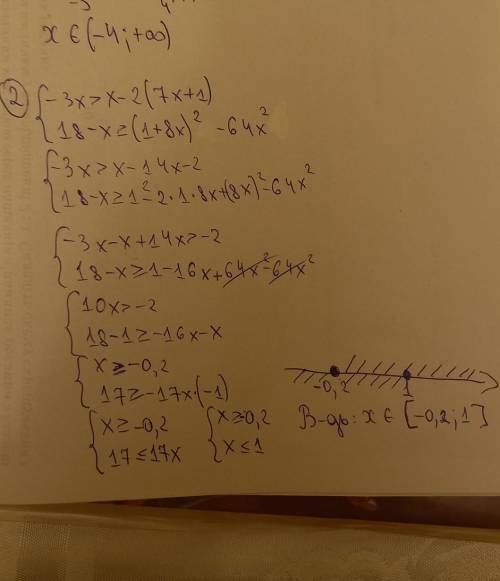 x ∈ (-4; +∞)
2
-3x > x-2(7x+1)
18-x ≥ (1+8x)² -64x²
-3x > x-14x-2
18-x ≥ 1²-2·1·8x+(8x)²-64x²
-3x-x+14x > -2
18-x ≥ 1-16x+64x²-64x²
10x > -2
18-1 ≥ -16x-x
x ≥ -0,2
17 ≥ -17x·(-1)
x ≥ -0,2
17 ≤ 17x
x ≥ -0,2
x ≤ 1
-0,2 1
В-дь: x ∈ [-0,2; 1]